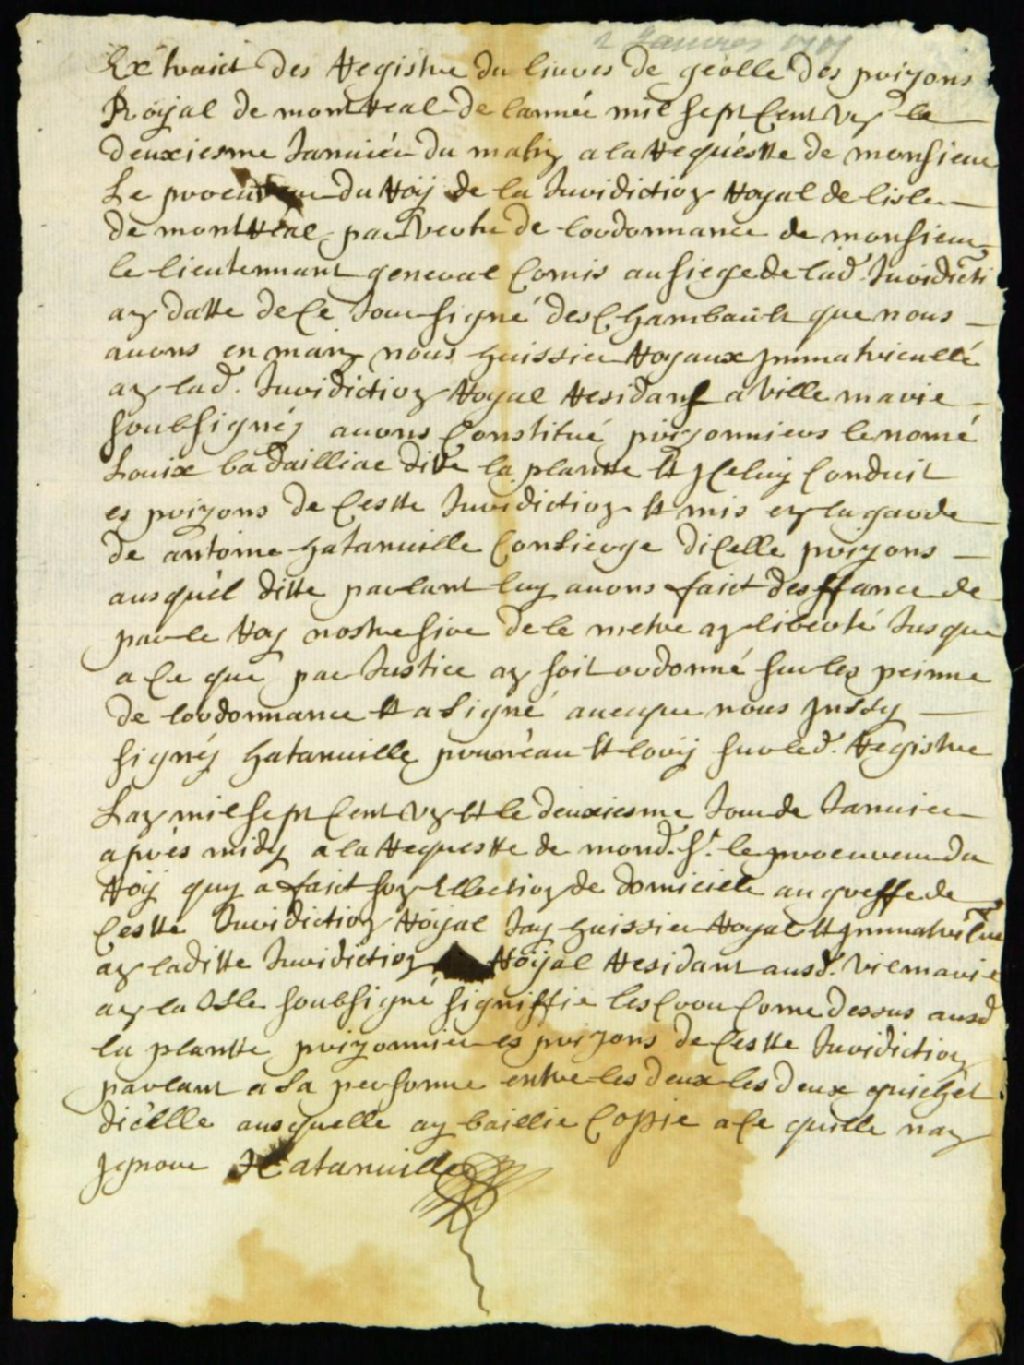 2 Janvier
Extraict des Registre du liuves de geolle des prizons
Röyal de montreal de lanneé mil sept Cent Un le
deuxiesme Januiér du matin a la Requéstte de monsieur
Le procureur du Röy de la Juridiction Royal de lisle
de montreal, par vertu de lordonnance de monsieur
le lieutennant general Comis au siege de lad. Juridicti
an datte de Ce Jour signé deschambault que nous
auons en main nous huissier Royaux Jmmatriculle
an lad. Juridiction Royal Residans a Ville marie
soubsignés auons Constitué prizonniers le nomé
Louix badailliac ditte la plantte Et Jceluy Conduit
es prizons de Cestte Juridiction Et mis en la garde
de antoine hatanuille Consierge dicelle prizons
ausquél ditte parlant luy auons faict desffance de
par le Roy nostre sire de le metre an liberté Jusque
a Ce que par Justice an soit ordonné sur les peinne
de lordonnance Et a signé aueque nous Jnssy
signés hatanuille, pruneau Et lory sur led. Registre
Lan mil sept Cent Un Et le deuxiesme Jour de Januier
aprés midy a la Requestte de mond. Sr. le procureur du
Röy quy a faict son Ellection de domicielle au greffe de
Cestte Juridiction Röyal Jay huissier Royal Et Jmmatricullé
an laditte Juridiction Röyal Residant ausd. Vilmarie
an la Isle soubsigné signiffié lescrou Come dessus ausd
la plantte, prizonnier es prizons de Cestte Juridiction
parlant a sa personne entre les deux les deux guichét
dicélle ausquelle ay baillié Coppie a Ce quille nan
Jgnore Hatanuille